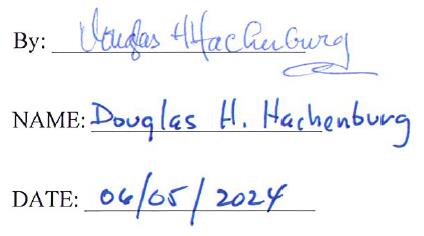 By: Douglas H Hachenburg
NAME: Douglas H. Hachenburg
DATE: 06/05/2024